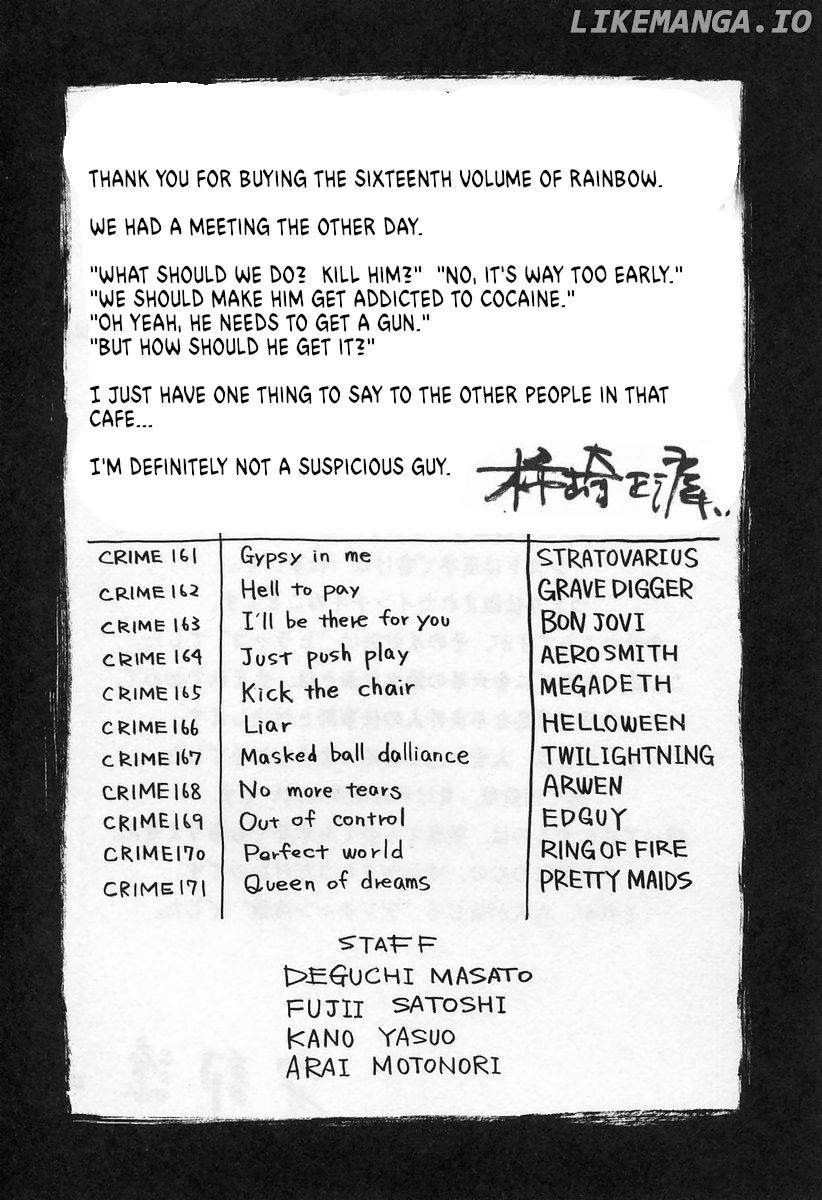 LIKEMANGA.IO
THANK YOU FOR BUYING THE SIXTEENTH VOLUME OF RAINBOW.
WE HAD A MEETING THE OTHER DAY.
"WHAT SHOULD WE DO? KILL HIM?" "NO, IT'S WAY TOO EARLY."
"WE SHOULD MAKE HIM GET ADDICTED TO COCAINE."
"OH YEAH, HE NEEDS TO GET A GUN."
"BUT HOW SHOULD HE GET IT?"
I JUST HAVE ONE THING TO SAY TO THE OTHER PEOPLE IN THAT
CAFE...
I'M DEFINITELY NOT A SUSPICIOUS GUY.
CRIME 161 Gypsy in me STRATOVARIUS
CRIME 162 Hell to pay GRAVE DIGGER
CRIME 163 I'll be there for you BON JOVI
CRIME 164 Just push play AEROSMITH
CRIME 165 Kick the chair MEGADETH
CRIME 166 Liar HELLOWEEN
CRIME 167 Masked ball dalliance TWILIGHTNING
CRIME 168 No more tears ARWEN
CRIME 169 Out of control EDGUY
CRIME 170 Perfect world RING OF FIRE
CRIME 171 Queen of dreams PRETTY MAIDS
STAFF
DEGUCHI MASATO
FUJII SATOSHI
KANO YASUO
ARAI MOTONORI